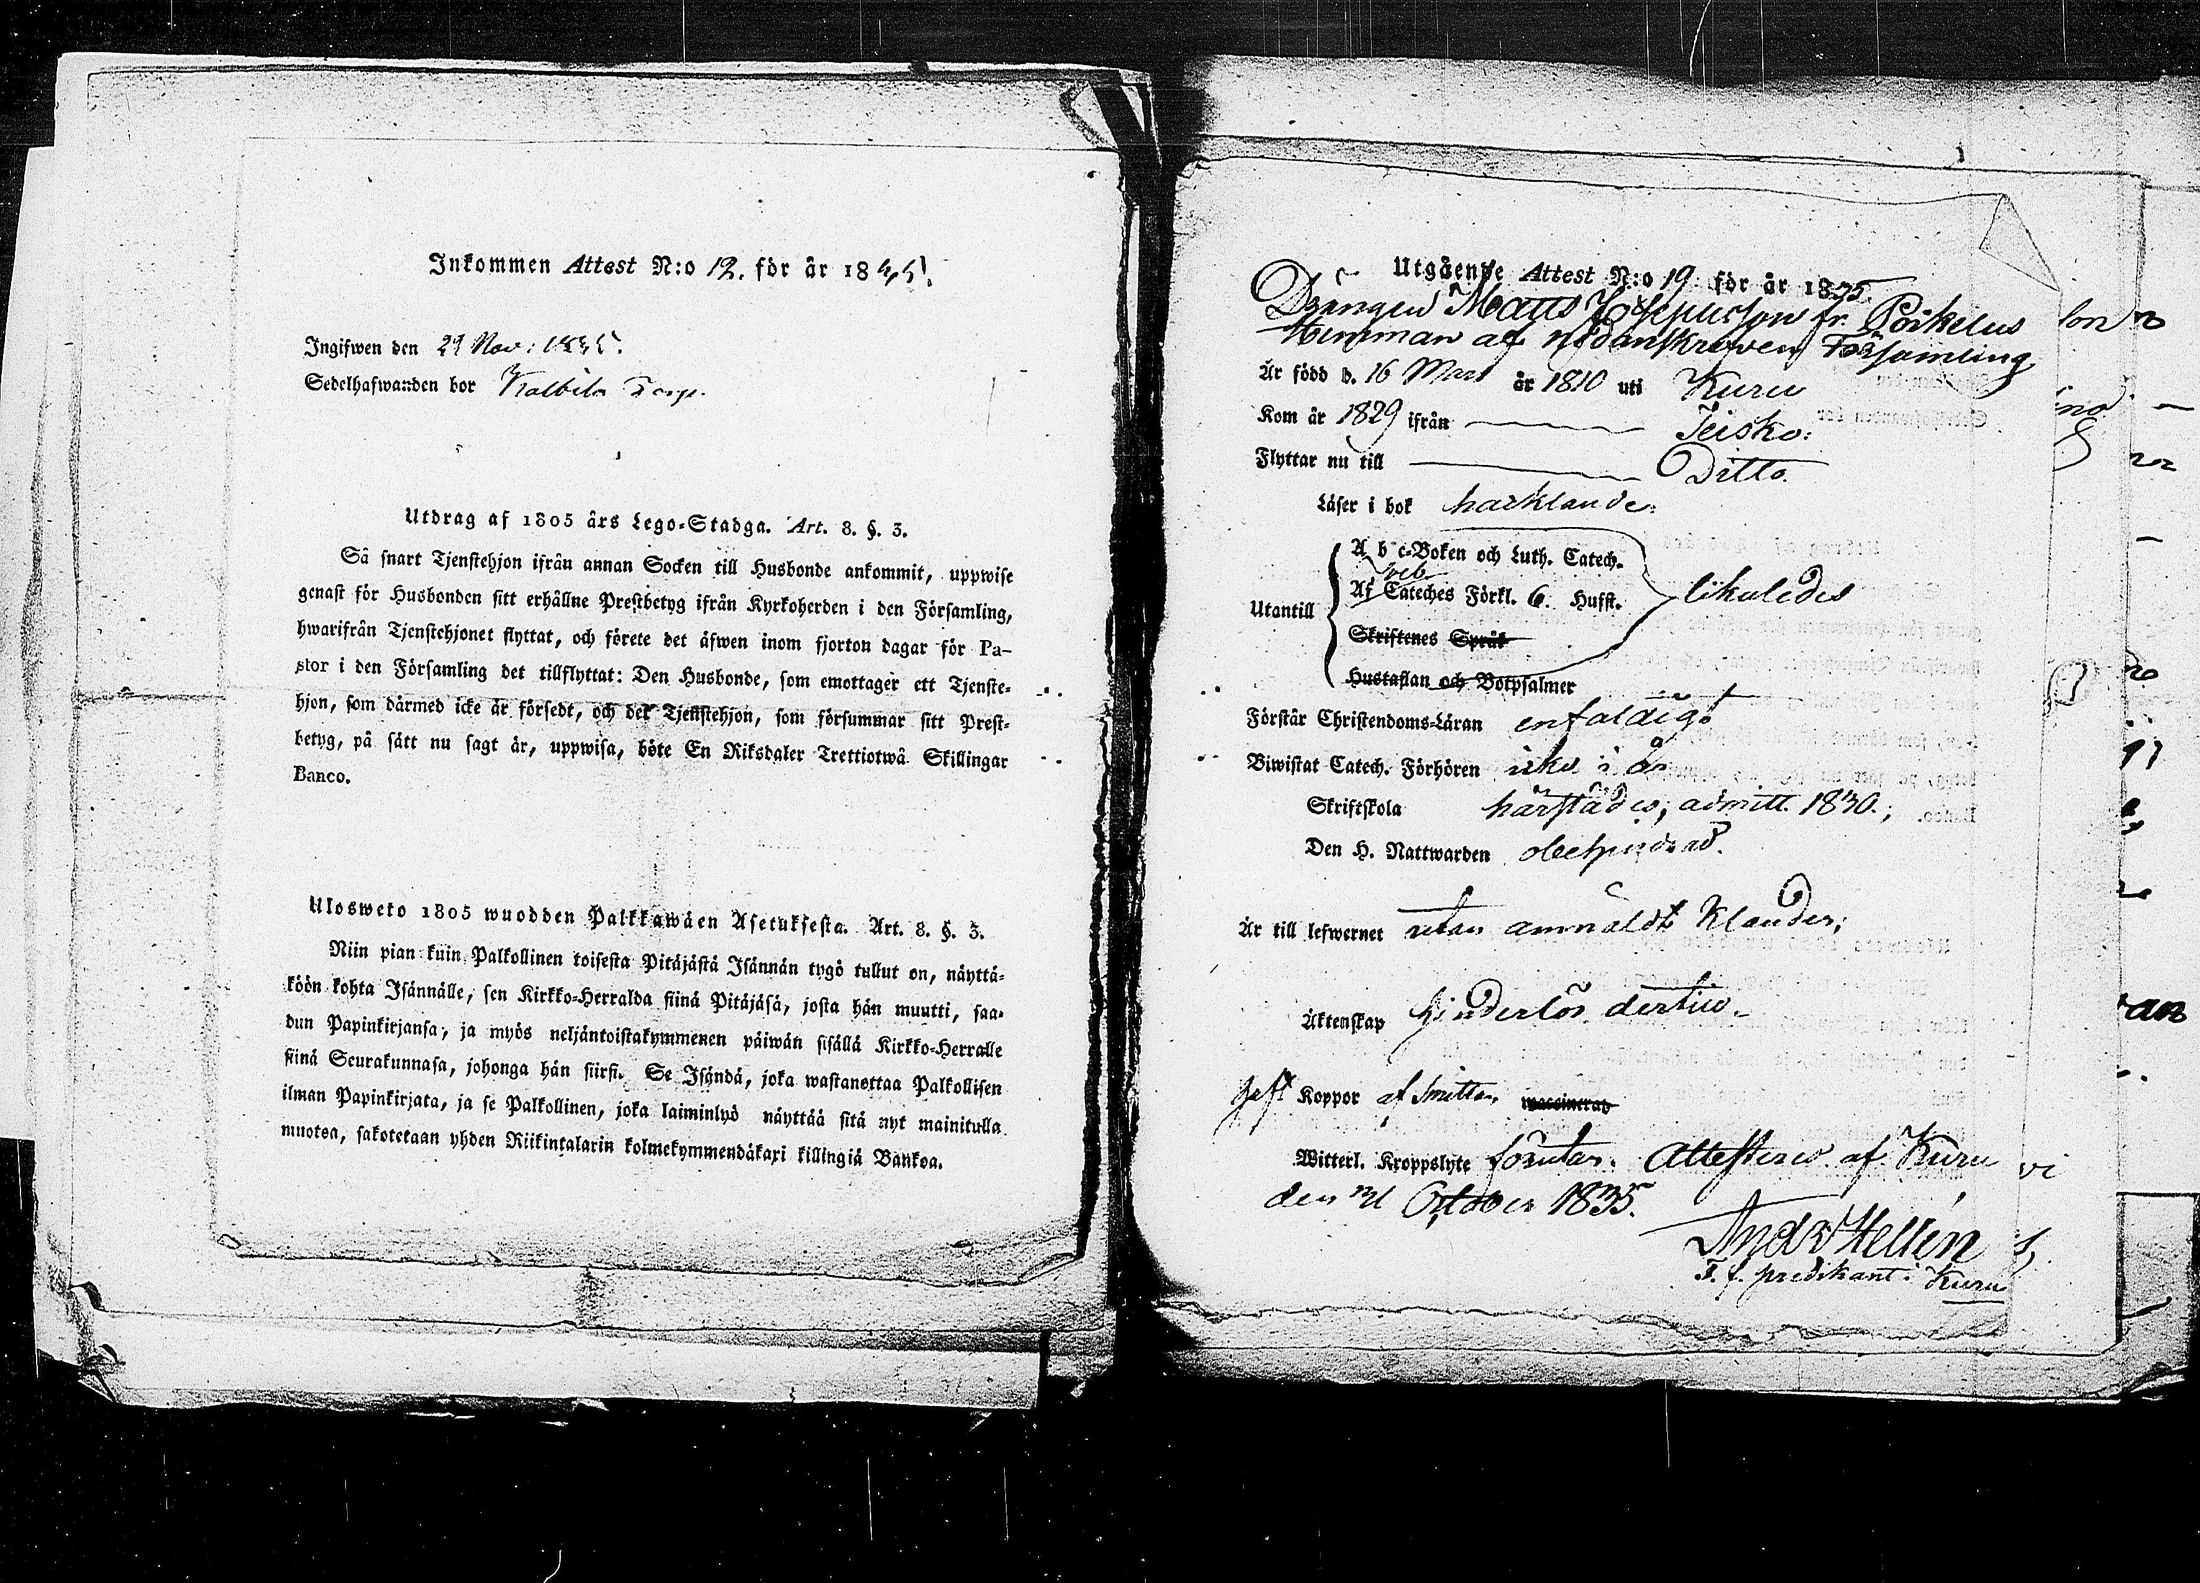 Inkommen Attest N:o 12. för år 1835.
Ingifwen den 29 Nov: 1835.
Sedelhafwanden bor Torp.
Utdrag af 1805 års Lego-Stadga. Art. 8. §. 3.
Så snart Tjenstehjon ifrån annan Socken till Husbonde ankommit, uppwise
genast för Husbonden sitt erhållne Prestbetyg ifrån Kyrkoherden i den Församling,
hwarifrån Tjenstehjonet flyttat, och förete det äfwen inom fjorton dagar för Pa-
stor i den Församling det tillflyttat: Den Husbonde, som emottager ett Tjenste-
hjon, som därmed icke är försedt, och det Tjenstehjon, som försummar sitt Prest-
betyg, på sätt nu sagt är, uppwisa, böte En Riksdaler Trettiotwå Skillingar
Banco.
Ulosweto 1805 wuodden Palkkawäen Asetuksesta. Art. 8. §. 3.
Niin pian kuin Palkollinen toisesta Pitäjästä Isännän tygö tullut on, näyttä-
köön kohta Isännälle, sen Kirkko-Herralda siinä Pitäjäsä, josta hän muutti, saa-
dun Papinkirjansa, ja myös neljäntoistakymmenen päiwän sisällä Kirkko-Herralle
siinä Seurakunnasa, johonga hän siirsi. Se Isändä, joka wastanottaa Palkollisen
ilman Papinkirjata, ja se Palkollinen, joka laiminlyö näyttää sitä nyt mainitulla
muotoa, sakotetaan yhden Riikintalarin kolmekymmendäkaxi killingiä Bankoa.
Utgående Attest N:o 19 för år 1835.
Drängen Matts Josephsson fr. Poikelus
Hemman af nedanskrefven Församling
Är född d. 16 Mars år 1810 uti Kuru
Kom år 1829 ifrån Teisko.
Flyttar nu till Ditto.
Läser i bok
A b c-Boken och Luth. Catech.
Utantill Af Cateches Förkl. 6. Husst. likaledes
Skriftenes Språk
Hustaflan och Botpsalmer
Förstår Christendoms-Läran enfaldigt
Biwistat Catech. Förhören icke i år
Skriftskola härstädes, admitt. 1830.;
Den H. Nattwarden obehindrad.
Är till lefwernet utan anmäldt klander;
Äktenskap hinderlös
haft Koppor af smittan, waccinerad
Witterl. Kroppslyte förutan. Attesteres af Kuru
den October 1835.
And. Hellén
T. f. predikant i Kuru